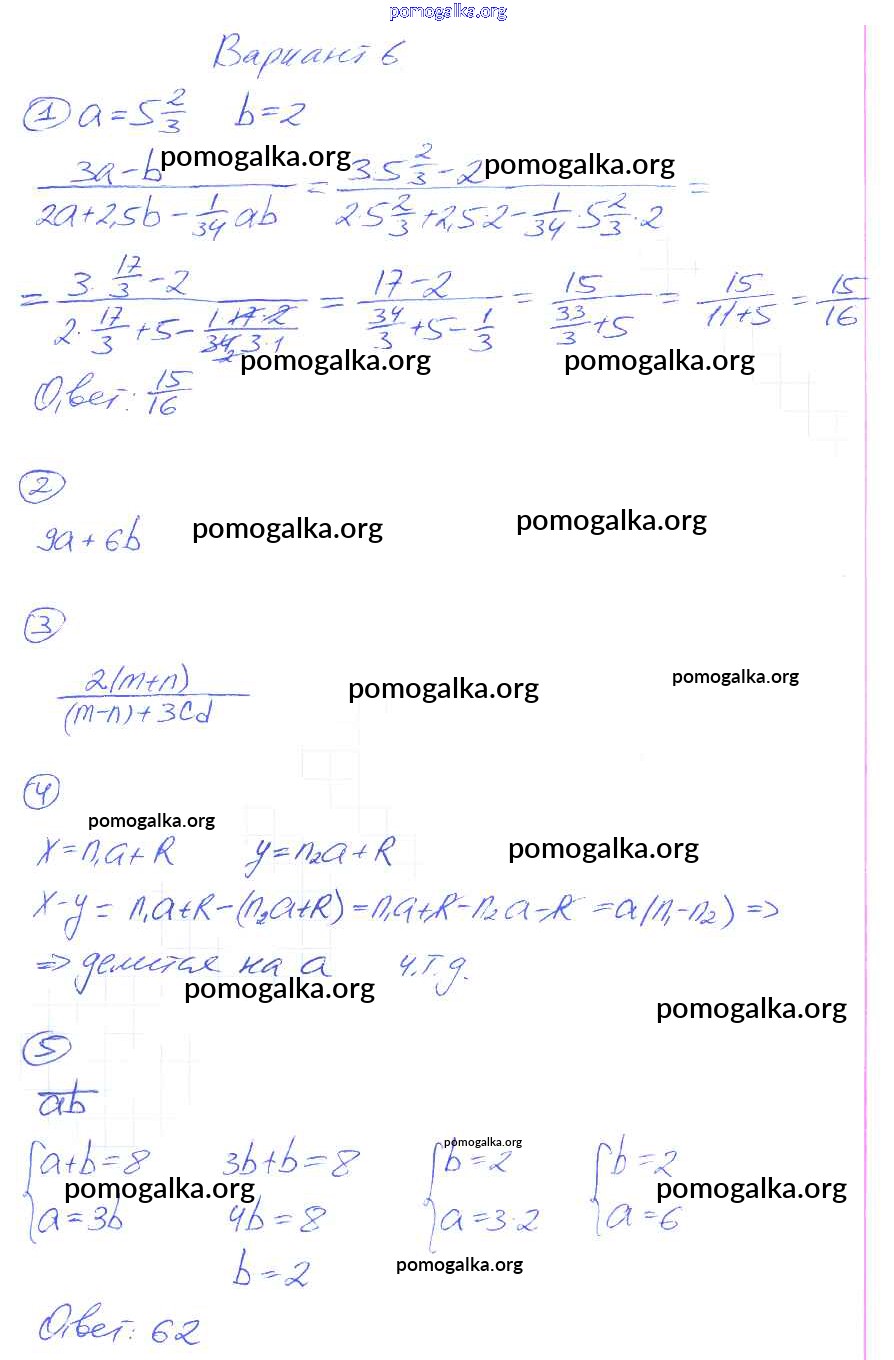 pomogalka.org
Вариант 6
① a = 5 2/3 b = 2
pomogalka.org pomogalka.org
(3a - b)/(2a + 2,5b - 1/34 ab) = (3·5 2/3 - 2)/(2·5 2/3 + 2,5·2 - 1/34·5 2/3·2) =
= (3·17/3 - 2)/(2·17/3 + 5 - (1·17·2)/(34·3·1)) = (17 - 2)/(34/3 + 5 - 1/3) = 15/(33/3 + 5) = 15/(11 + 5) = 15/16
pomogalka.org pomogalka.org
Ответ: 15/16
②
9a + 6b pomogalka.org pomogalka.org
③
2(m+n)/((m-n) + 3cd) pomogalka.org pomogalka.org
④
pomogalka.org
x = n₁a + R y = n₂a + R pomogalka.org
x - y = n₁a + R - (n₂a + R) = n₁a + R - n₂a - R = a(n₁ - n₂) =>
=> делится на a ч.т.д.
pomogalka.org pomogalka.org
⑤
ab
pomogalka.org
{a + b = 8 3b + b = 8 {b = 2 {b = 2
pomogalka.org pomogalka.org
a = 3b 4b = 8 a = 3·2 a = 6
b = 2 pomogalka.org
Ответ: 62